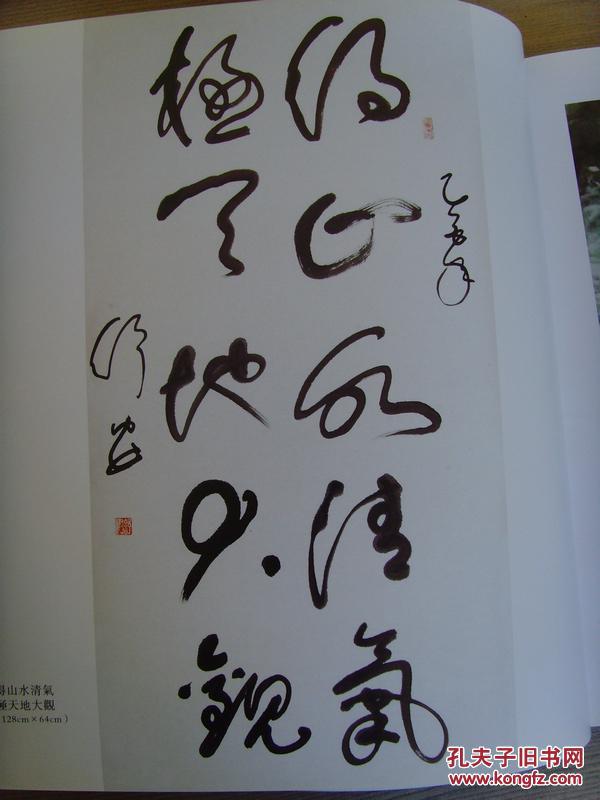 得山水清氣
極天地大觀
乙酉年
得山水清氣
極天地大觀
128cm×64cm）
孔夫子旧书网
www.kongfz.com